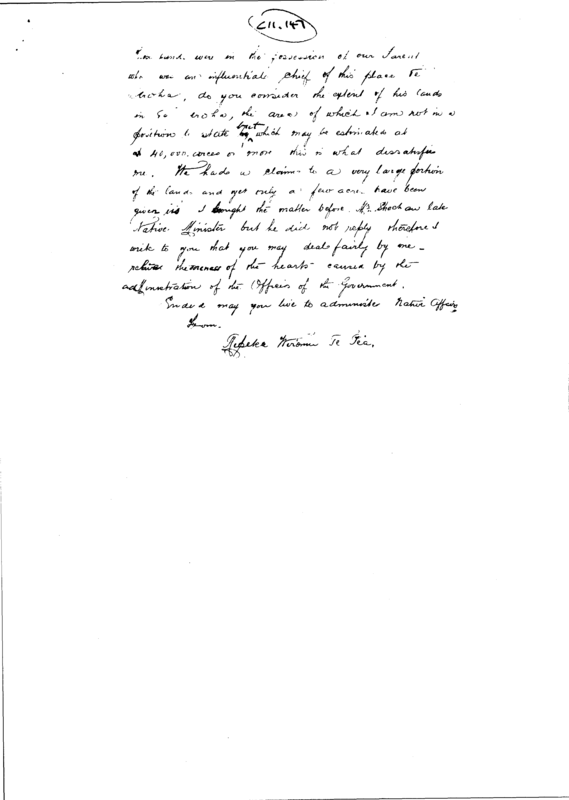 C11.147
were in the possession of our Parent
who was an influentials chief of this place Te
Aroha, do you consider the extent of his lands
in Te Aroha, the area of which I am not in a
position to state but which may be estimated at
40,000 acres or more this is what dissatisfies
me. We had a claim to a very large portion
of the land and yet only a few acres have been
given us I brought the matter before Mr Sheehan late
Native Minister but he did not reply therefore I
write to you that you may deal fairly by me
of the hearts caused by the
administration of the Officers of the Government.
Ended may you live to administer Native Affairs
From
Ripeka Te